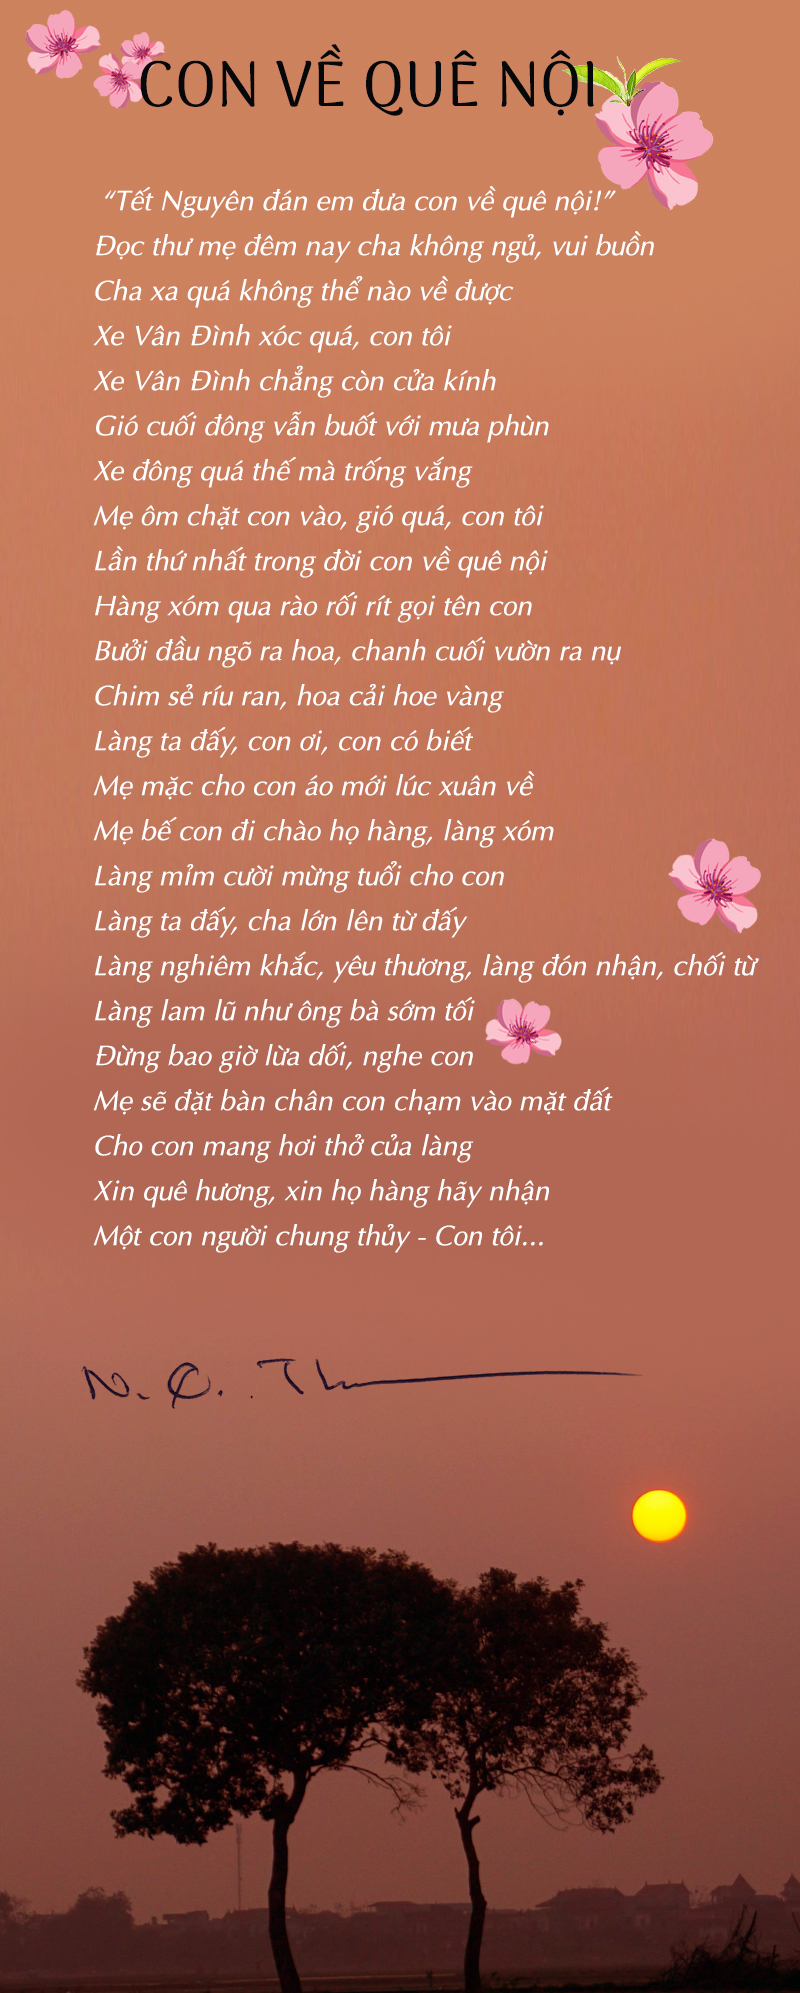 CON VỀ QUÊ NỘI
“Tết Nguyên đán em đưa con về quê nội!”
Đọc thư mẹ đêm nay cha không ngủ, vui buồn
Cha xa quá không thể nào về được
Xe Vân Đình xóc quá, con tôi
Xe Vân Đình chẳng còn cửa kính
Gió cuối đông vẫn buốt với mưa phùn
Xe đông quá thế mà trống vắng
Mẹ ôm chặt con vào, gió quá, con tôi
Lần thứ nhất trong đời con về quê nội
Hàng xóm qua rào rối rít gọi tên con
Bưởi đầu ngõ ra hoa, chanh cuối vườn ra nụ
Chim sẻ ríu ran, hoa cải hoe vàng
Làng ta đấy, con ơi, con có biết
Mẹ mặc cho con áo mới lúc xuân về
Mẹ bế con đi chào họ hàng, làng xóm
Làng mỉm cười mừng tuổi cho con
Làng ta đấy, cha lớn lên từ đấy
Làng nghiêm khắc, yêu thương, làng đón nhận, chối từ
Làng lam lũ như ông bà sớm tối
Đừng bao giờ lừa dối, nghe con
Mẹ sẽ đặt bàn chân con chạm vào mặt đất
Cho con mang hơi thở của làng
Xin quê hương, xin họ hàng hãy nhận
Một con người chung thủy - Con tôi...
N. Q. Th